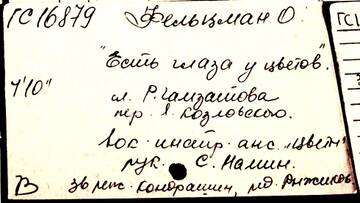 ГС 16879 Фельцман О.
"Есть глаза у цветов".
4'10"
сл. Р. Гамзатова
пер. Я. Козловского.
Вок. инстр. анс. "Цветы"
рук. С. Намин.
В зв. реж. Кондрашин, ред. Рыжиков
ГС1